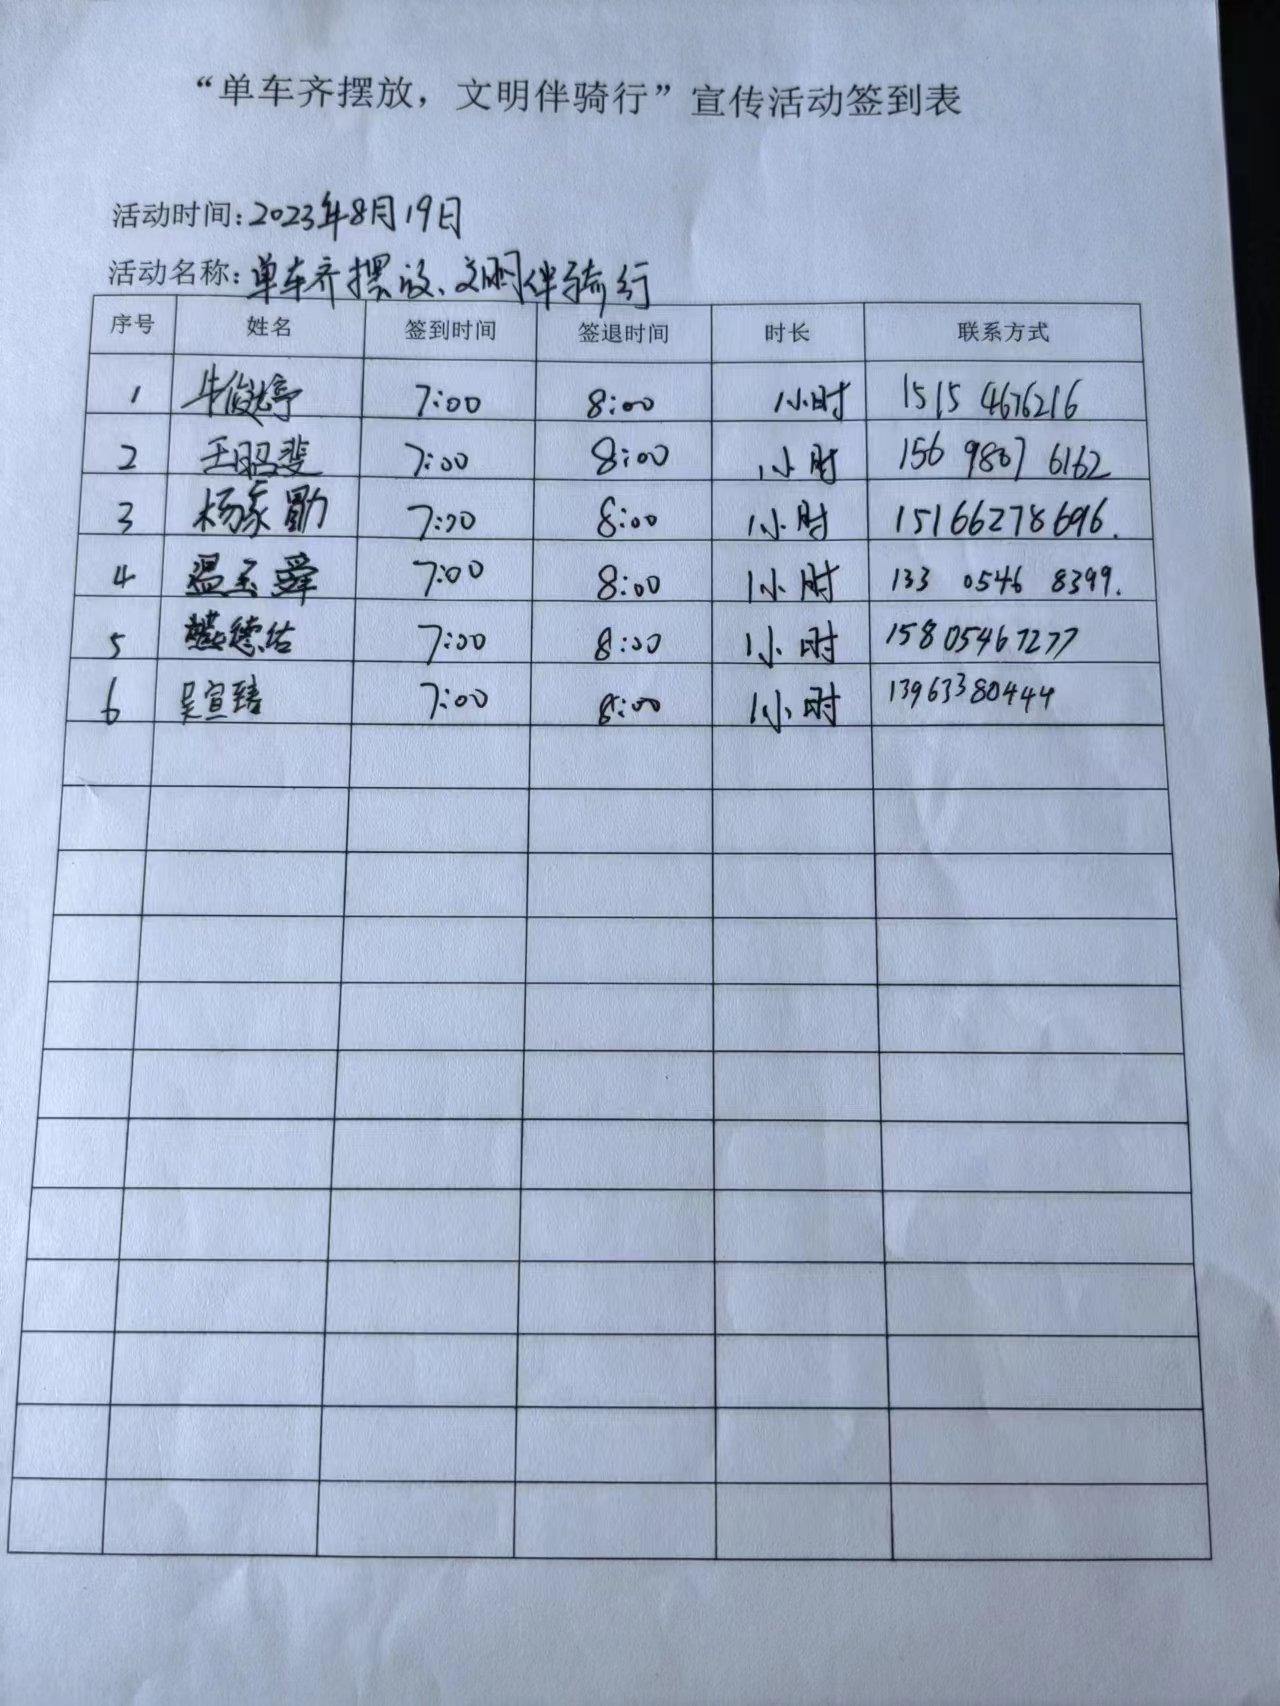 “单车齐摆放，文明伴骑行”宣传活动签到表
活动时间:2023年8月19日
活动名称:单车齐摆放、文明伴骑行
序号 姓名 签到时间 签退时间 时长 联系方式
1 牛俊婷 7:00 8:00 1小时 1515 4676216
2 王昭斐 7:00 8:00 1小时 156 9867 6162
3 杨家勋 7:00 8:00 1小时 15166278696.
4 温玉舜 7:00 8:00 1小时 133 0546 8399.
5 德佑 7:00 8:00 1小时 15805467277
6 吴宣 7:00 8:00 1小时 13963380444